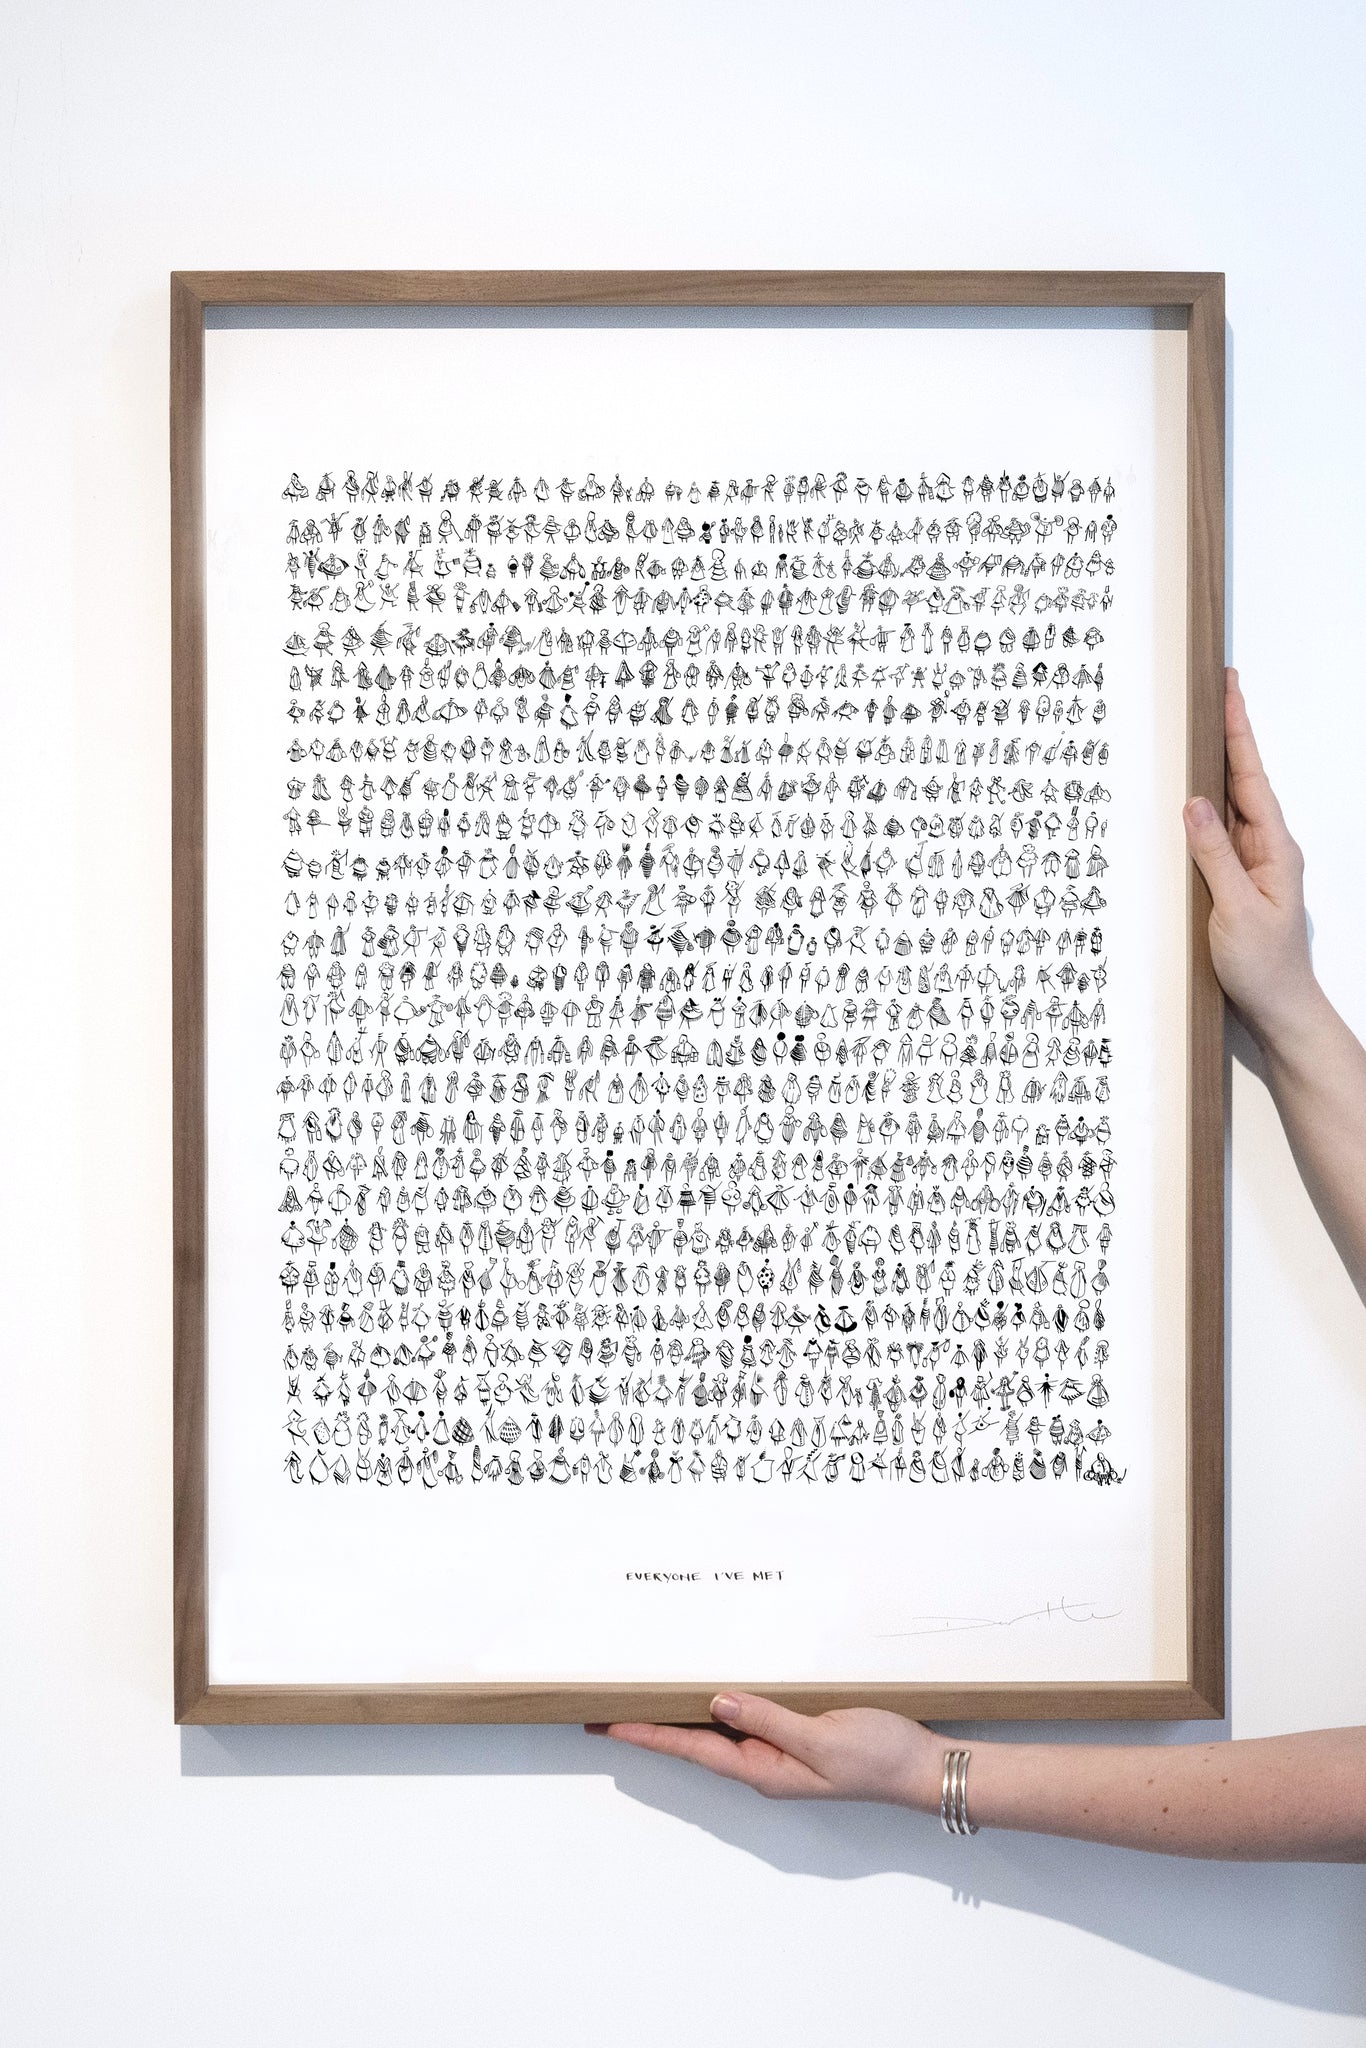 EVERYONE I'VE MET